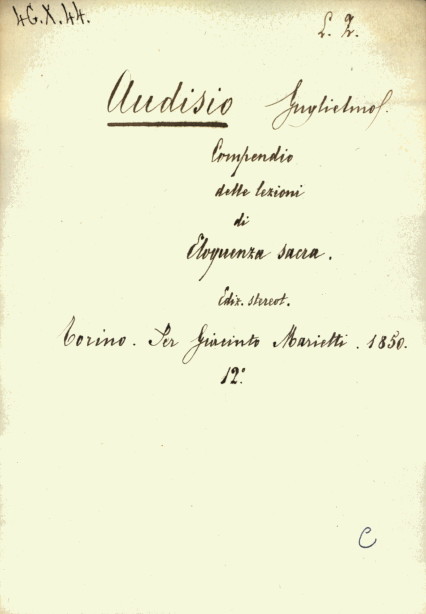 4G.X.44.
L. 2.
Audisio Guglielmo.
Compendio
delle lezioni
di
Eloquenza sacra.
Ediz. stereot.
Torino. Per Giacinto Marietti. 1850.
12°.
C